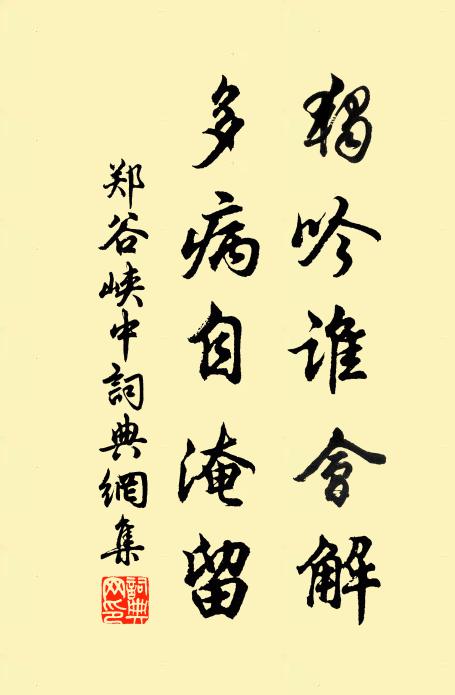 獨吟誰會解
多病自淹留
郑谷峡中詞典網集
詞典网印